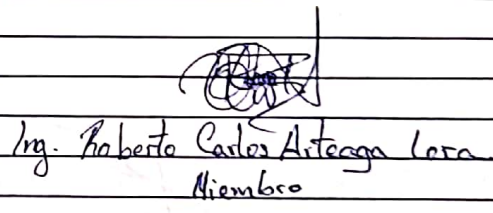 Ing. Roberto Carlos Arteaga Lora
Miembro